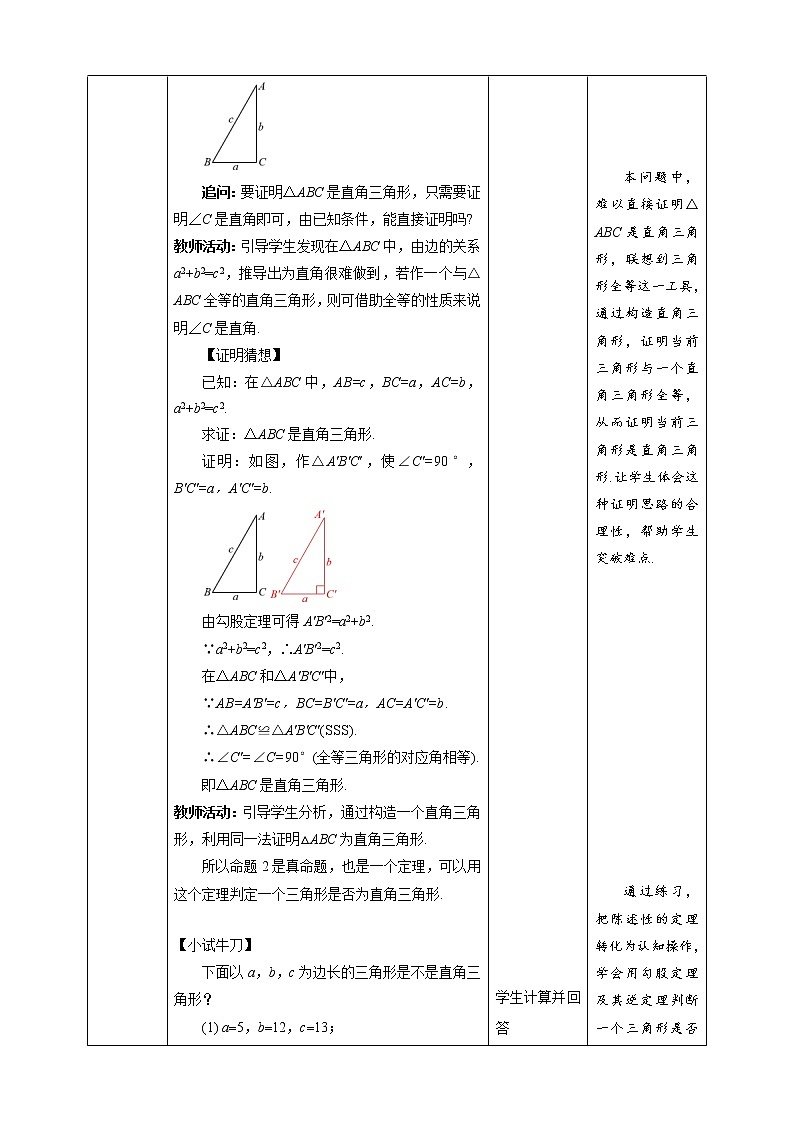 A
c
b
B
a
C
追问：要证明△ABC 是直角三角形，只需要证
明∠C 是直角即可，由已知条件，能直接证明吗?
教师活动：引导学生发现在△ABC 中，由边的关系
a²+b²=c²，推导出为直角很难做到，若作一个与△
ABC 全等的直角三角形，则可借助全等的性质来说
明∠C 是直角.
【证明猜想】
已知：在△ABC 中，AB=c，BC=a，AC=b，
a²+b²=c².
求证：△ABC 是直角三角形.
证明：如图，作△A'B'C'，使∠C'=90°，
B'C'=a，A'C'=b.
A
c
b
B
a
C
A'
c
b
B'
a
C'
由勾股定理可得 A'B'²=a²+b².
∵a²+b²=c²，∴A'B'²=c².
在△ABC 和△A'B'C'中，
∵AB=A'B'=c，BC=B'C'=a，AC=A'C'=b.
∴△ABC≌△A'B'C'(SSS).
∴∠C'=∠C=90°(全等三角形的对应角相等).
即△ABC 是直角三角形.
教师活动：引导学生分析，通过构造一个直角三角
形，利用同一法证明△ABC 为直角三角形.
所以命题 2 是真命题，也是一个定理，可以用
这个定理判定一个三角形是否为直角三角形.
【小试牛刀】
下面以 a，b，c 为边长的三角形是不是直角三
角形？
(1) a=5，b=12，c=13；
学生计算并回
答
本问题中，
难以直接证明△
ABC 是直角三角
形，联想到三角
形全等这一工具，
通过构造直角三
角形，证明当前
三角形与一个直
角三角形全等，
从而证明当前三
角形是直角三角
形.让学生体会这
种证明思路的合
理性，帮助学生
突破难点.
通过练习，
把陈述性的定理
转化为认知操作，
学会用勾股定理
及其逆定理判断
一个三角形是否